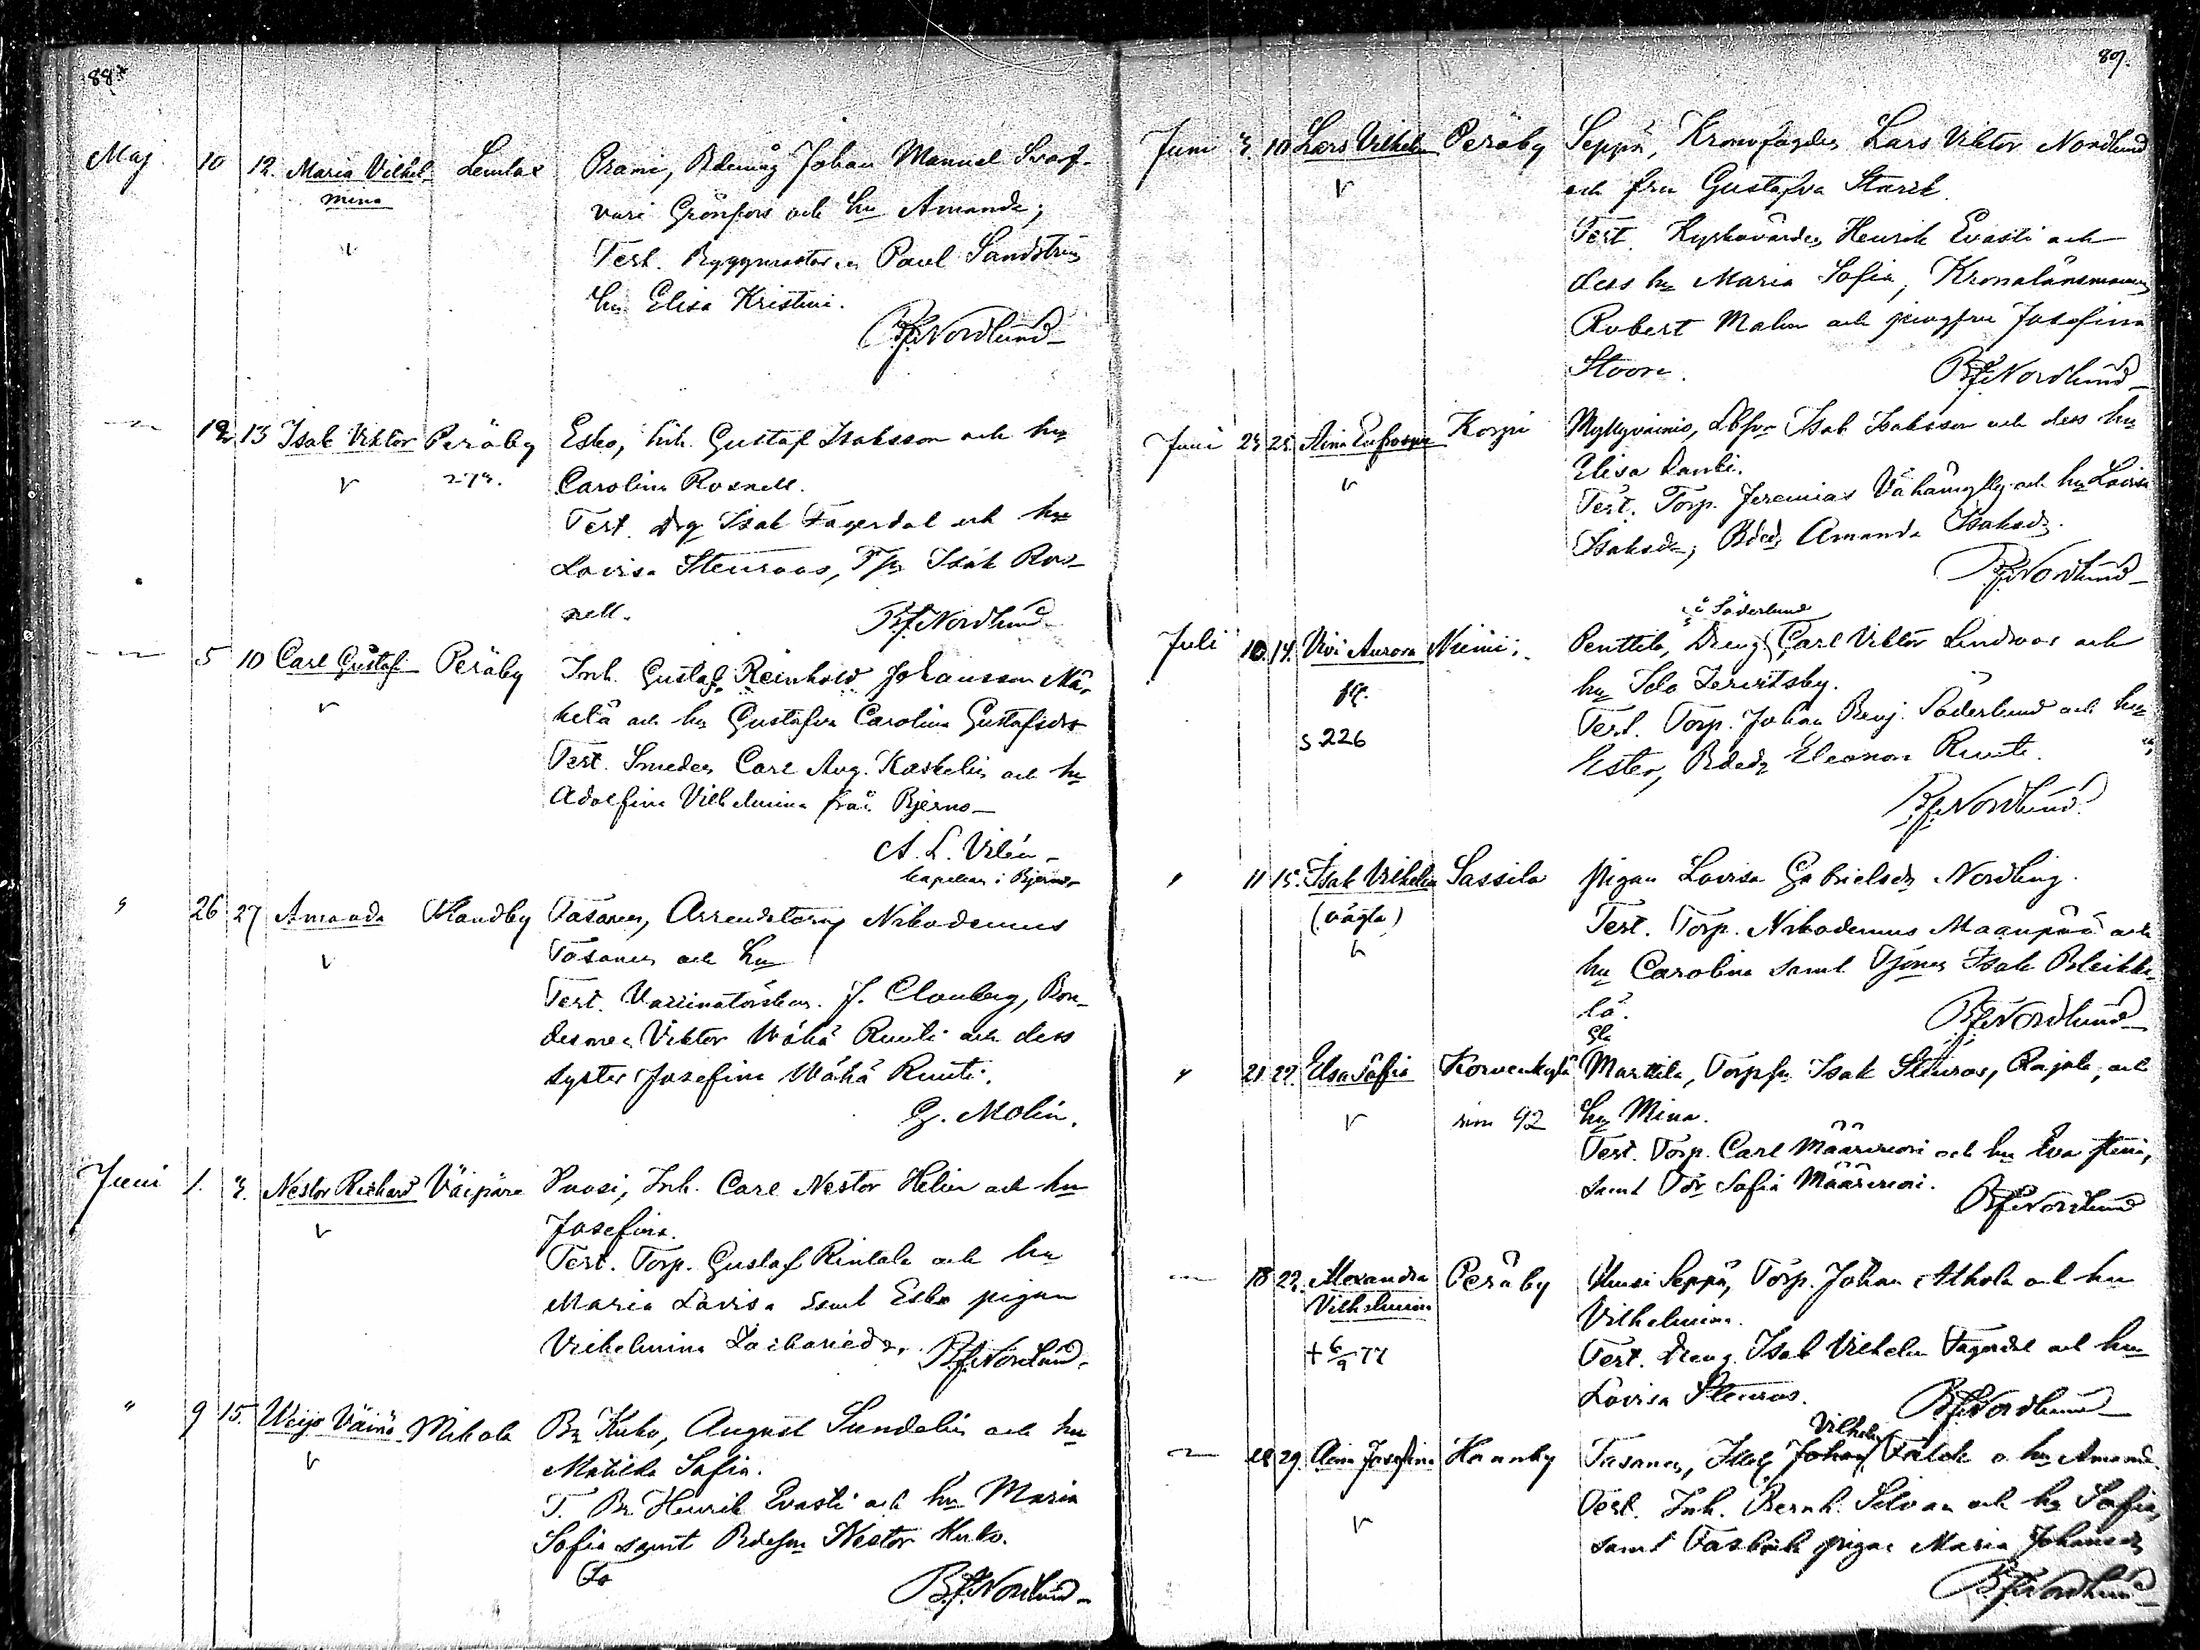 88
Maj 10 12. Maria Vilhel- Lemlax Prami, Bdemåg Johan Manuel Svarf-
mina vari Grönfors och hu Amanda;
Test. Byggmästaren Paul Sandström
hu Elisa Kristina.
B.f. Nordlund
12 13 Isak Viktor Peräby Esko, Inh. Gustaf Isaksson och hu
273. Carolina Rosnell.
Test. Dg Isak Fagerdal och hu
Lovisa Stenroos, Isak Ros-
nell. B.f. Nordlund
5 10 Carl Gustaf Peräby Inh. Gustaf Reinhold Johansson Mä-
kelä och hu Gustafva Carolina Gustafsdr
Test. Smeden Carl Aug. Kaskelin och hu
Adolfina Vilhelmina från Bjerno
A. L. Vilén
kapellan i Bjerno
" 26 27 Amanda Strandby Tasanen, Arrendatorn Nikodemus
Tasanen och hu
Test. Vaccinatörskan J. Clonberg, Bon-
desonen Viktor Wähä Ruuti och dess
syster Josefina Wähä Ruuti.
G. Molin.
Juni 1. 3. Nestor Richard Väipäre Puosi, Inh. Carl Nestor Helin och hu
Josefina.
Test. Torp. Gustaf Rintala och hu
Maria Lovisa samt Esko pigan
Vilhelmina Zachariedr. B.f. Nordlund.
" 9 15. Weijo Väinö Mikola Bn Kuko, August Sundelin och hu
Matilda Sofia.
T. Bn Henrik Evasti och hu Maria
Sofia samt Bdesn Nestor Kuko.
B.f. Nordlund
89.
Juni 3. 10 Lars Vilhelm Peräby Seppä, Kronofogden Lars Viktor Nordlund
och fru Gustafva Starck.
Test. Kyrkovärden Henrik Evasti och
dess hu Maria Sofia, Kronolänsmannen
Robert Malm och jungfru Josefina
Stoore. B.f. Nordlund
Juni 23 25. Aina Eufrosyne Korpi Myllyvainio, Isak Isaksson och dess hu
Elisa
Test. Torp. Jeremias Vähämylly och hu Lovisa
Isaksdr; Amanda Isaksdr.
B.f. Nordlund
Söderlund
Juli 10 14. Vivi Aurora Niemi; Penttilä, Dreng Carl Viktor Lindroos och
hu Ida Zervitsby.
s 226 Test. Torp. Johan Benj. Söderlund och hu
Ester, Eleonora Ruuti.
B.f. Nordlund.
" 11 15. Isak Vilhelm Sassila pigan Lovisa Gabrielsdr Nordling.
(oägta) Test. Torp. Nikodemus Maanpää och
hu Carolina samt Isak Pleikki-
lä.
B.f. Nordlund
" 21 22. Elsa Sofia Korvenkylä Marttila, Torpsn Isak Stenros, Rajala, och
92 hu Mina.
Test. Torp. Carl Määrivuori och hu Eva Stina,
samt Sofia Määrivuori. B.f. Nordlund
18 22. Alexandra Peräby Uusi Seppä, Torp. Johan Alhola och hu
Vilhelmina Vilhelmina.
+ 6/9 77 Test. Dreng Isak Vilhelm Fagerdal och hu
Lovisa Stenros. B.f. Nordlund
Vilhelm
28 29. Aina Josefina Haanby Tasanen, Johan Falck o hu Amanda
Test. Inh. Bernh. Silvan och hu Sofia,
samt pigan Maria Johansdr
B.f. Nordlund